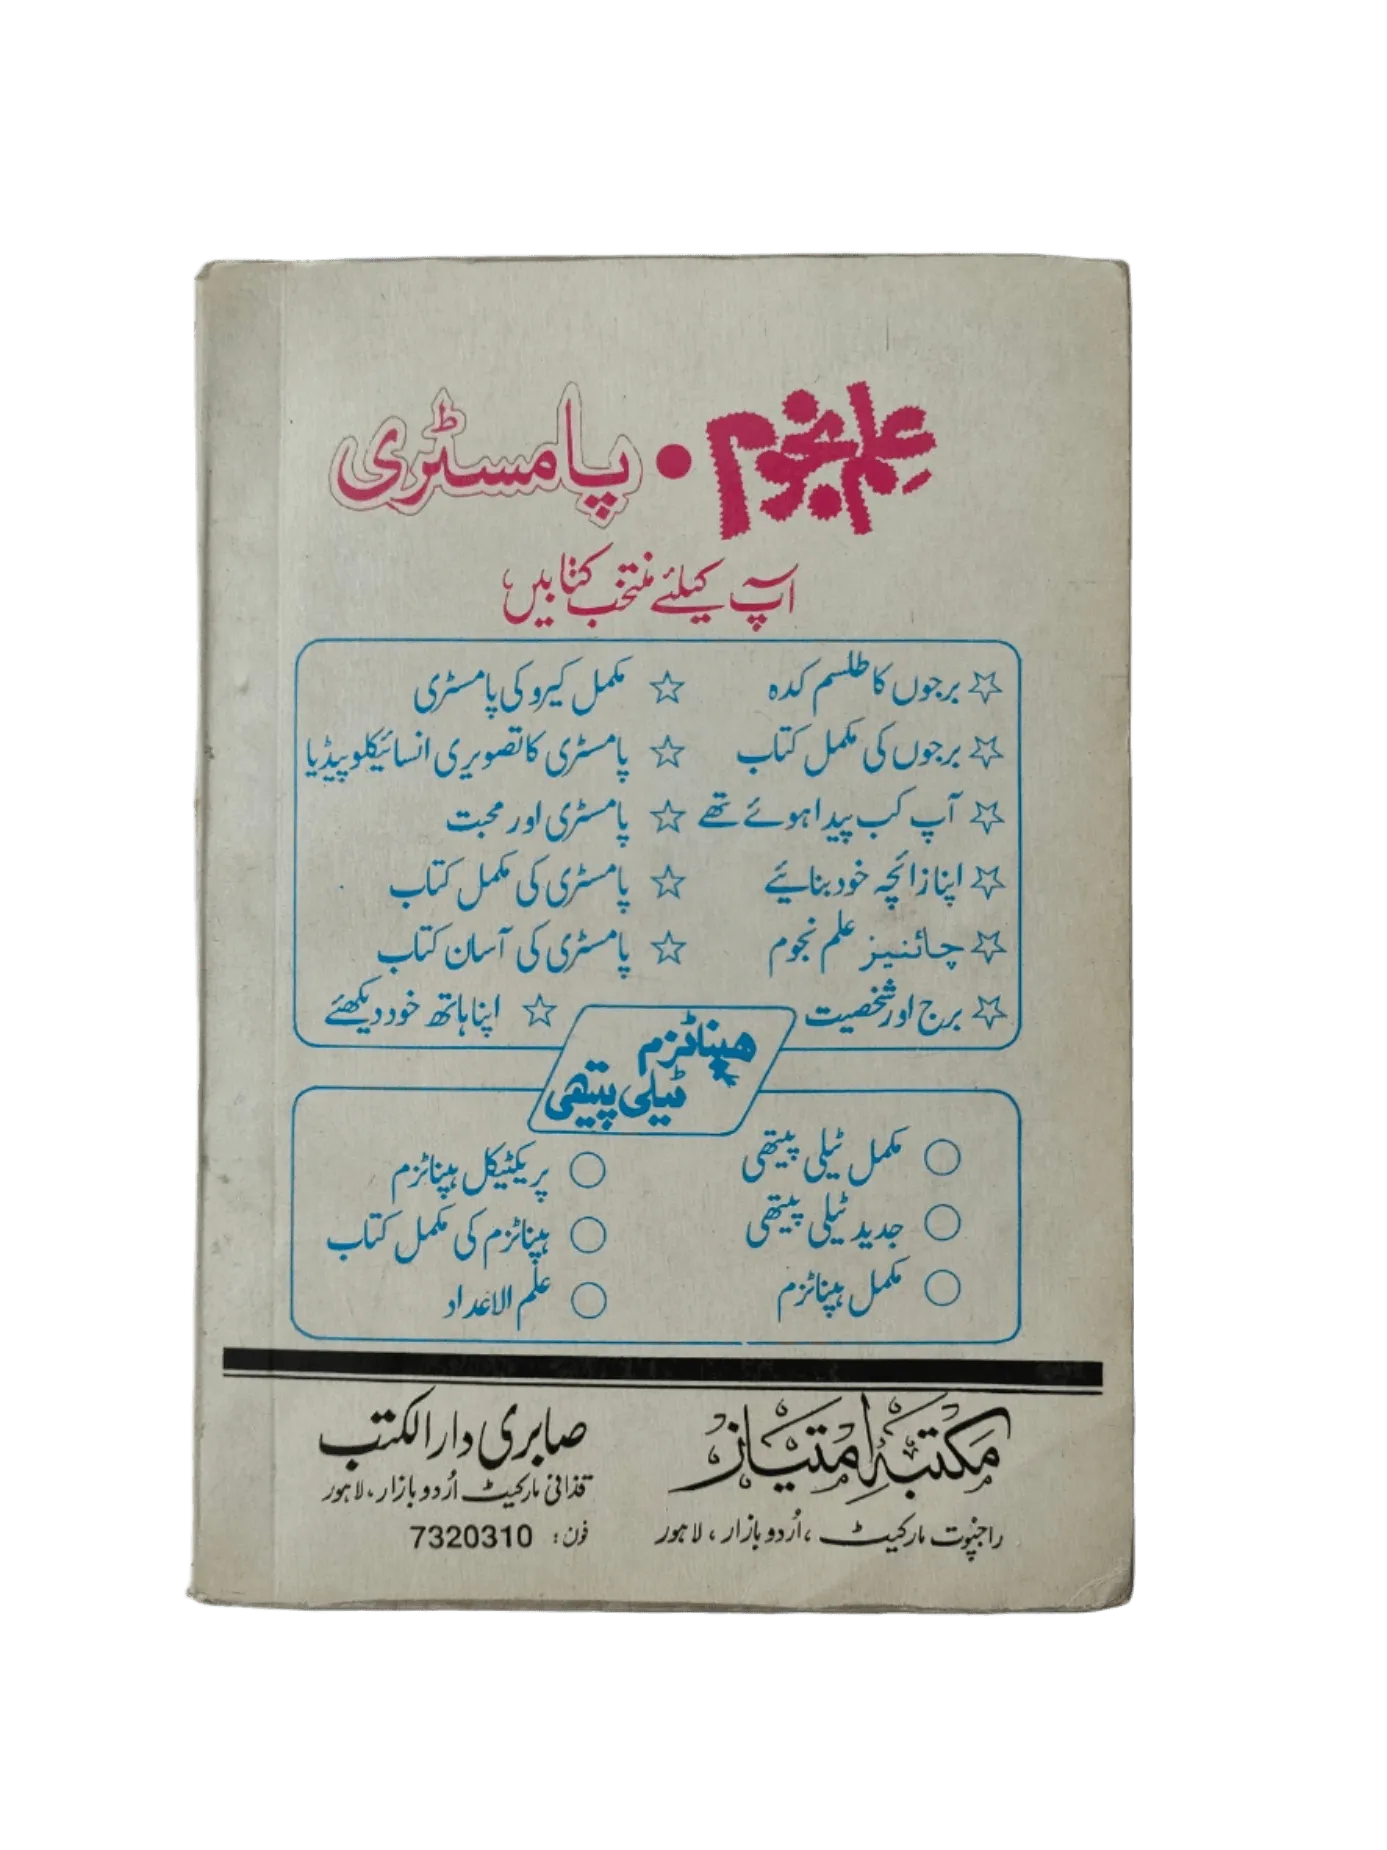 علم نجوم • پامسٹری
آپ کیلئے منتخب کتابیں
☆ برجوں کا طلسم کدہ
☆ برجوں کی مکمل کتاب
☆ آپ کب پیدا ہوئے تھے
☆ اپنا زائچہ خود بنائیے
☆ چائنیز علم نجوم
☆ برج اور شخصیت
☆ مکمل کیرو کی پامسٹری
☆ پامسٹری کا تصویری انسائیکلوپیڈیا
☆ پامسٹری اور محبت
☆ پامسٹری کی مکمل کتاب
☆ پامسٹری کی آسان کتاب
☆ اپنا ہاتھ خود دیکھئے
ہپناٹزم
ٹیلی پیتھی
○ مکمل ٹیلی پیتھی
○ جدید ٹیلی پیتھی
○ مکمل ہپناٹزم
○ پریکٹیکل ہپناٹزم
○ ہپناٹزم کی مکمل کتاب
○ علم الاعداد
مکتبہ امتیاز
راجپوت مارکیٹ ، اُردو بازار ، لاہور
صابری دارالکتب
قذافی مارکیٹ اُردو بازار، لاہور
فون: 7320310